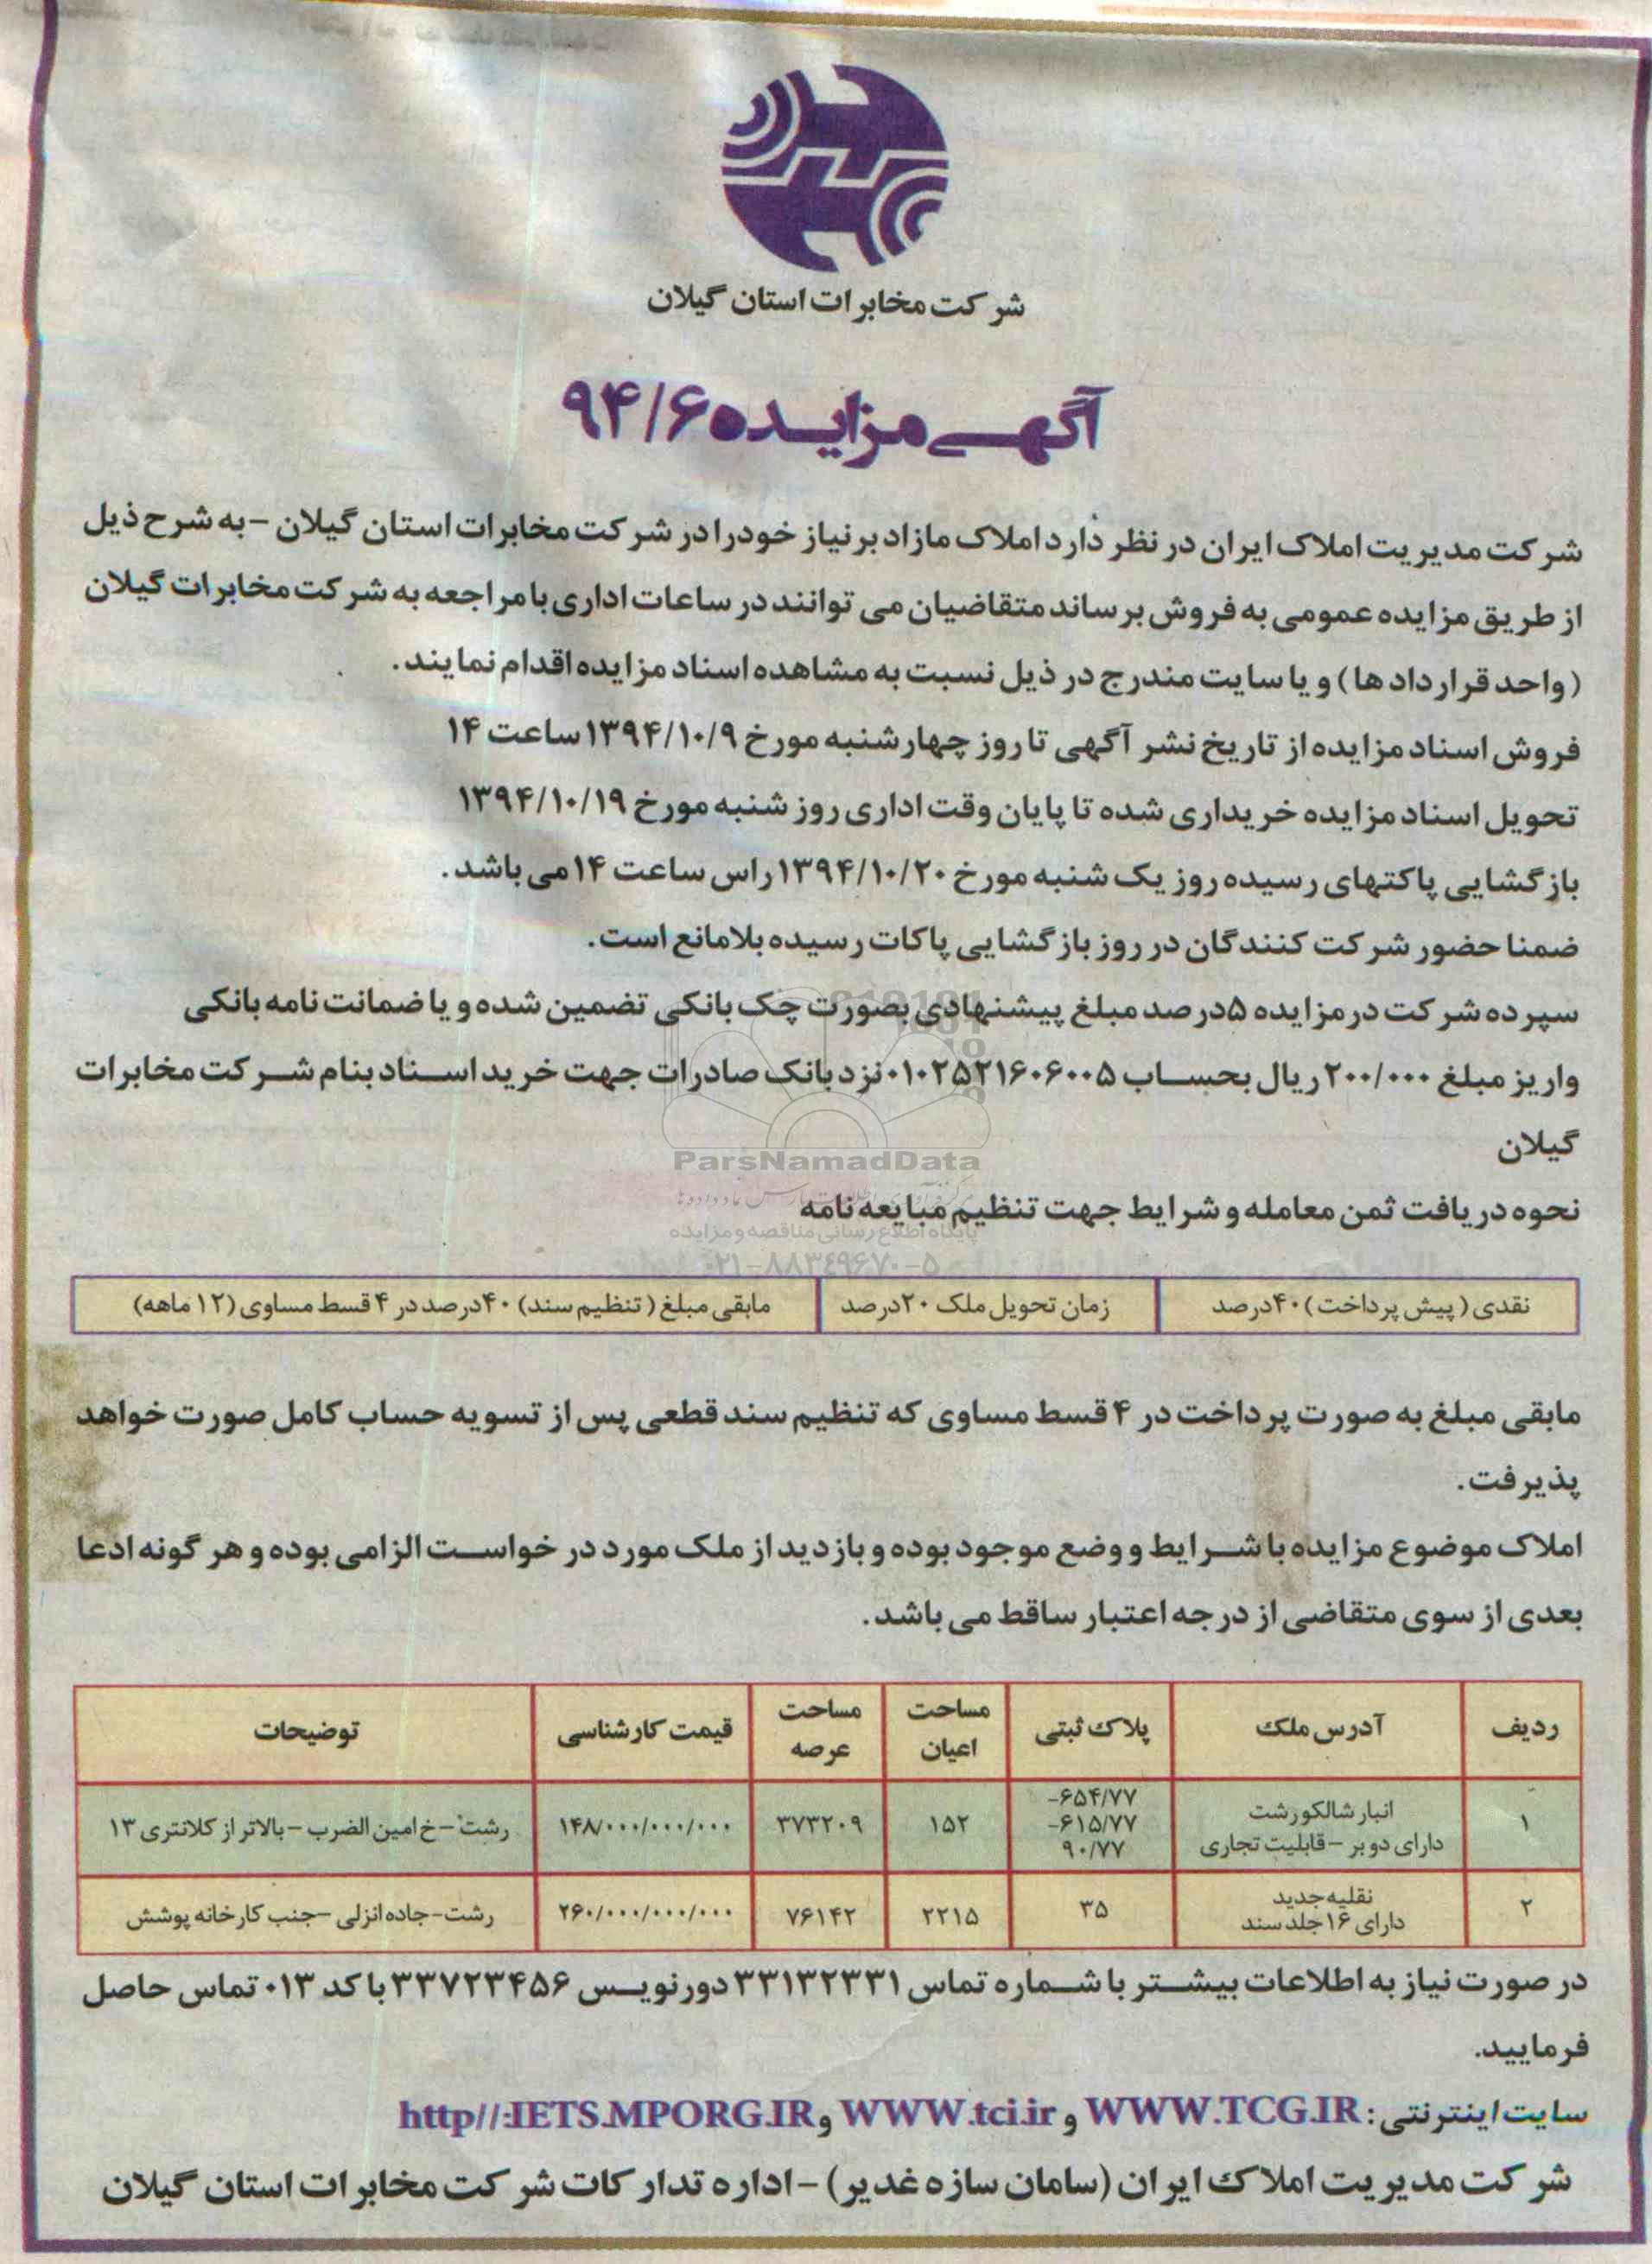 شرکت مخابرات استان گیلان
آگهی مزایده ۹۴/۶
شرکت مدیریت املاک ایران در نظر دارد املاک مازاد بر نیاز خود را در شرکت مخابرات استان گیلان - به شرح ذیل
از طریق مزایده عمومی به فروش برساند متقاضیان می توانند در ساعات اداری با مراجعه به شرکت مخابرات گیلان
(واحد قرارداد ها) و یا سایت مندرج در ذیل نسبت به مشاهده اسناد مزایده اقدام نمایند.
فروش اسناد مزایده از تاریخ نشر آگهی تا روز چهارشنبه مورخ ۱۳۹۴/۱۰/۹ ساعت ۱۴
تحویل اسناد مزایده خریداری شده تا پایان وقت اداری روز شنبه مورخ ۱۳۹۴/۱۰/۱۹
بازگشایی پاکتهای رسیده روز یک شنبه مورخ ۱۳۹۴/۱۰/۲۰ راس ساعت ۱۴ می باشد.
ضمنا حضور شرکت کنندگان در روز بازگشایی پاکات رسیده بلامانع است.
سپرده شرکت در مزایده ۵ درصد مبلغ پیشنهادی بصورت چک بانکی تضمین شده و یا ضمانت نامه بانکی
واریز مبلغ ۲۰۰/۰۰۰ ریال بحساب ۰۱۰۲۵۲۱۶۰۶۰۰۵ نزد بانک صادرات جهت خرید اسناد بنام شرکت مخابرات
گیلان
ParsNamadData
نحوه دریافت ثمن معامله و شرایط جهت تنظیم مبایعه نامه
پایگاه اطلاع رسانی مناقصه و مزایده
۰۲۱-۸۸۳۴۹۶۷۰-۵
نقدی (پیش پرداخت) ۴۰ درصد | زمان تحویل ملک ۲۰ درصد | مابقی مبلغ (تنظیم سند) ۴۰ درصد در ۴ قسط مساوی (۱۲ ماهه)
مابقی مبلغ به صورت پرداخت در ۴ قسط مساوی که تنظیم سند قطعی پس از تسویه حساب کامل صورت خواهد
پذیرفت.
املاک موضوع مزایده با شرایط و وضع موجود بوده و بازدید از ملک مورد در خواست الزامی بوده و هر گونه ادعا
بعدی از سوی متقاضی از درجه اعتبار ساقط می باشد.
ردیف | آدرس ملک | پلاک ثبتی | مساحت اعیان | مساحت عرصه | قیمت کارشناسی | توضیحات
۱ | انبار شالکو رشت دارای دو بر - قابلیت تجاری | ۶۵۴/۷۷- ۶۱۵/۷۷- ۹۰/۷۷ | ۱۵۲ | ۳۷۳۲۰۹ | ۱۴۸/۰۰۰/۰۰۰/۰۰۰ | رشت - خ امین الضرب - بالاتر از کلانتری ۱۳
۲ | نقلیه جدید دارای ۱۶ جلد سند | ۳۵ | ۲۲۱۵ | ۷۶۱۴۲ | ۲۶۰/۰۰۰/۰۰۰/۰۰۰ | رشت - جاده انزلی - جنب کارخانه پوشش
در صورت نیاز به اطلاعات بیشتر با شماره تماس ۳۳۱۳۲۳۳۱ دورنویس ۳۳۷۲۳۴۵۶ با کد ۰۱۳ تماس حاصل
فرمایید.
سایت اینترنتی: WWW.TCG.IR و WWW.tci.ir و http//:IETS.MPORG.IR
شرکت مدیریت املاک ایران (سامان سازه غدیر) - اداره تدارکات شرکت مخابرات استان گیلان